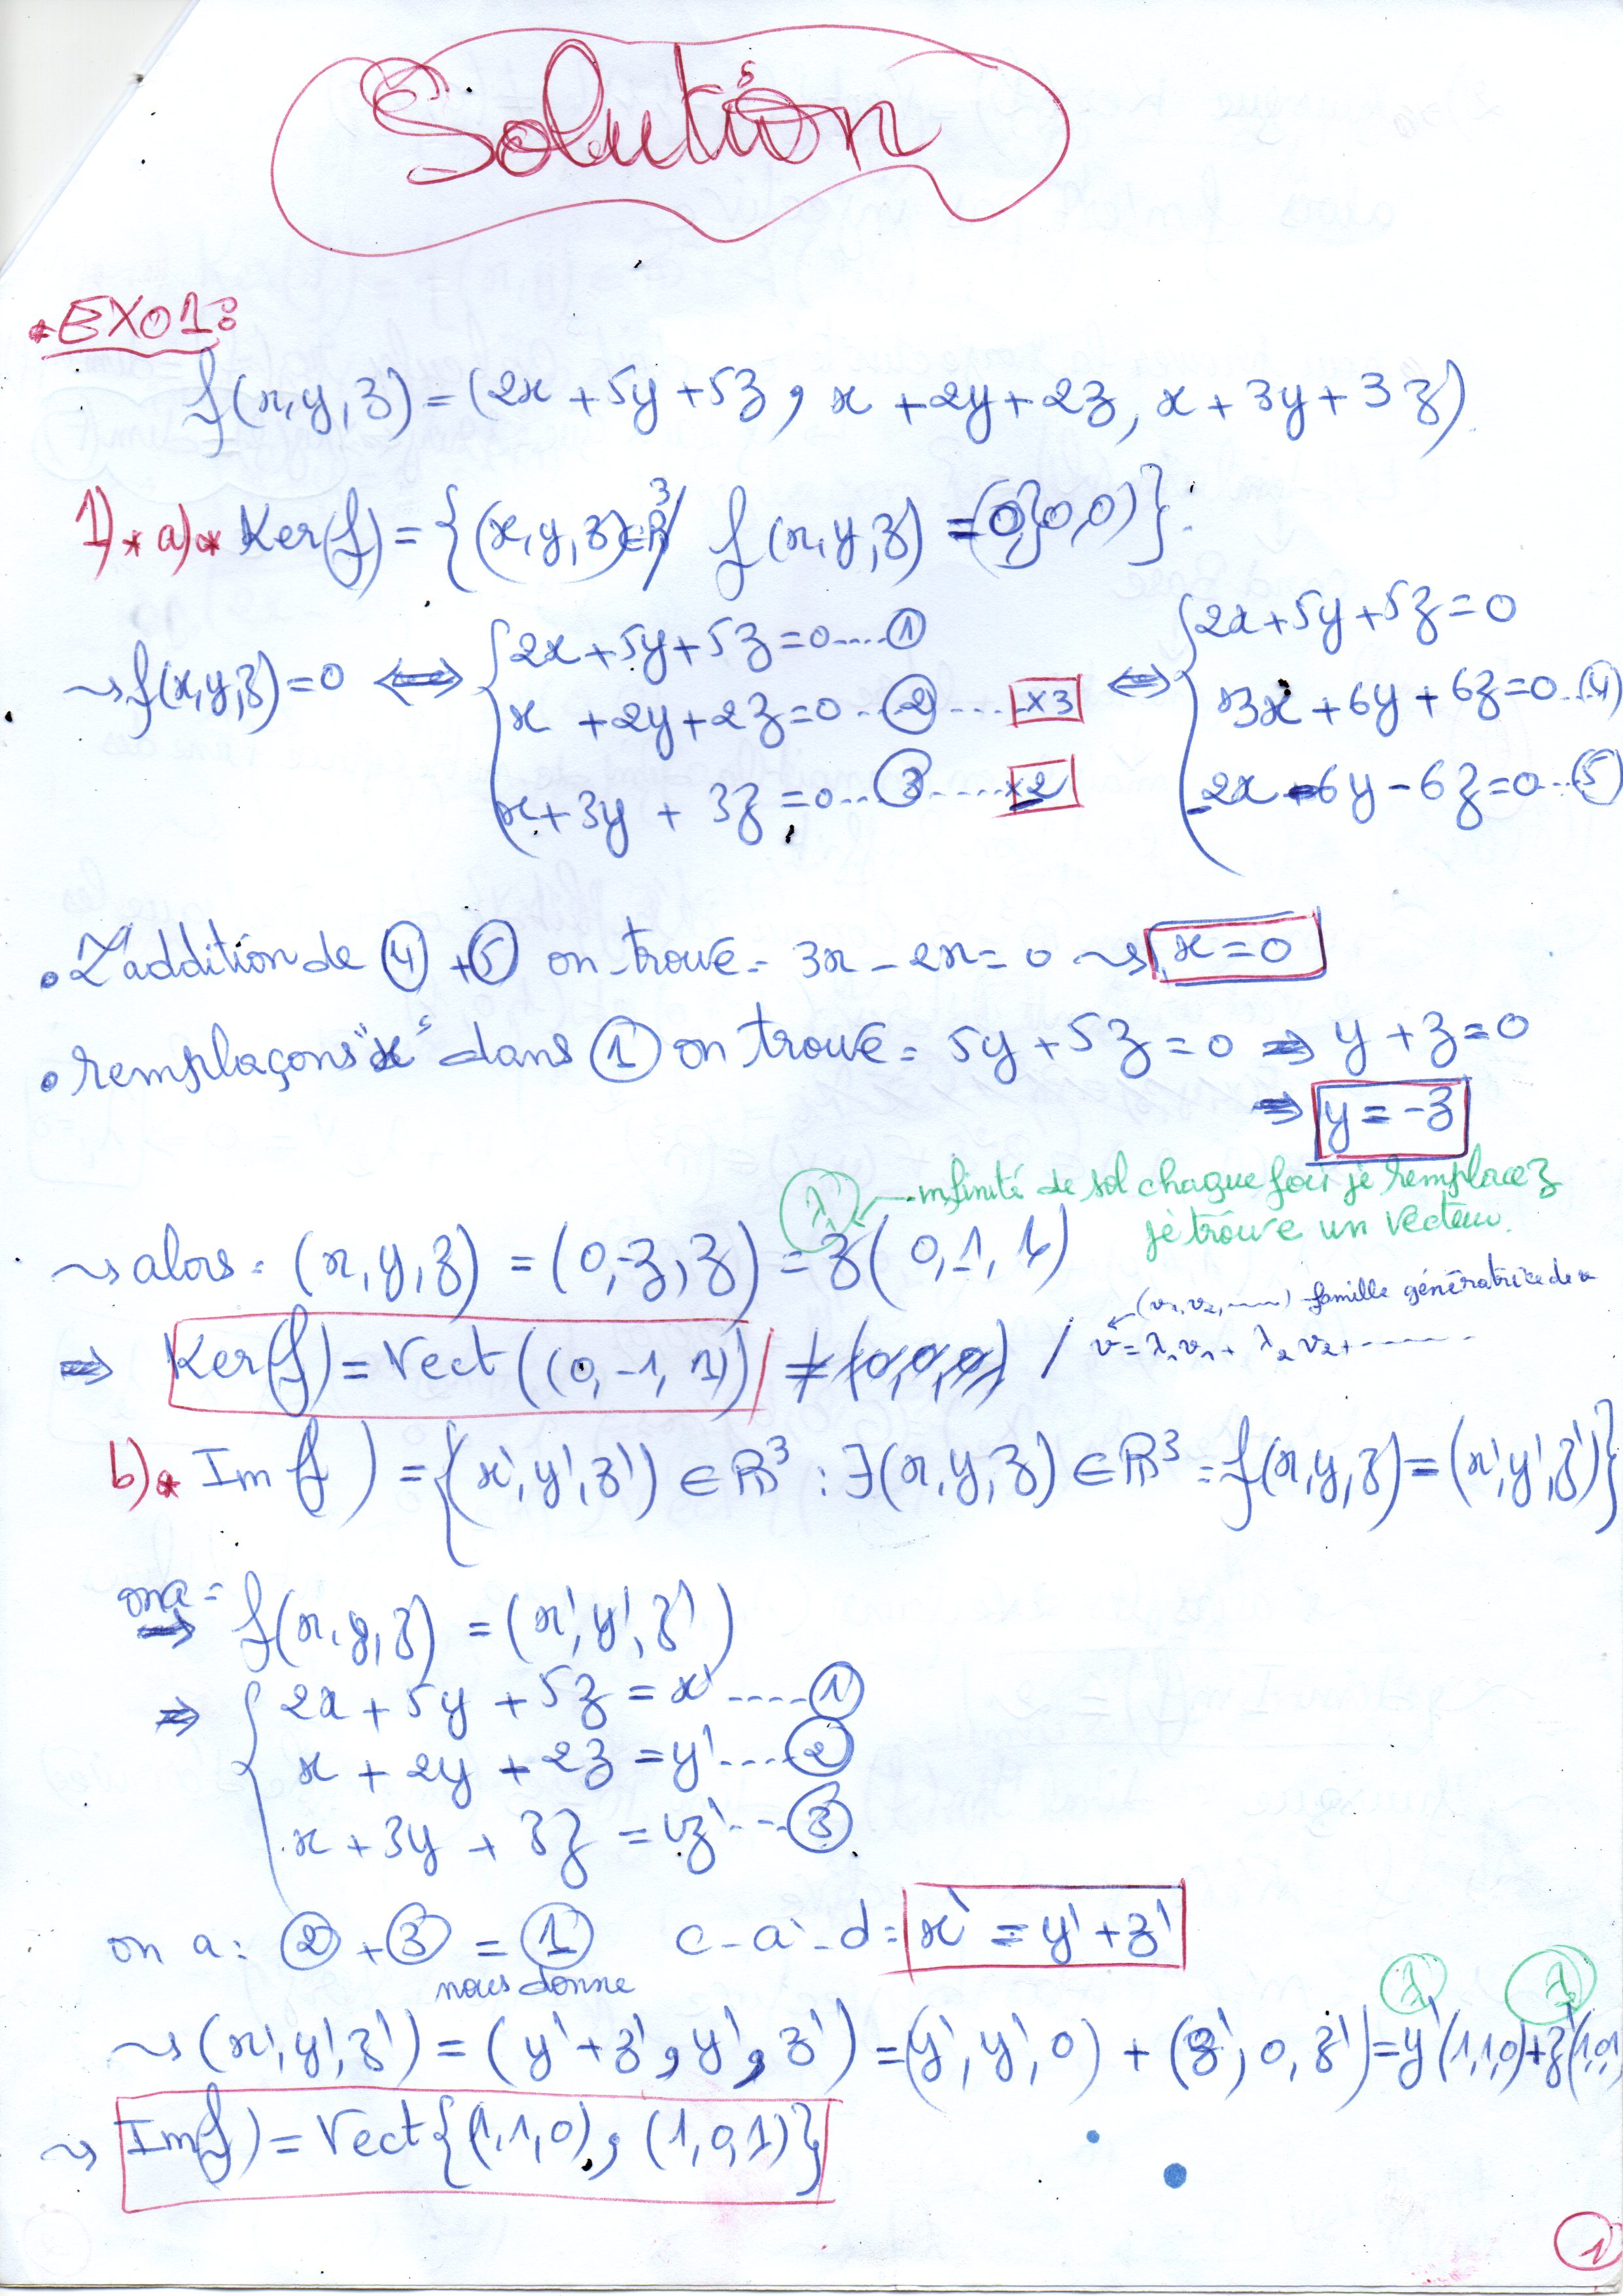 Solution
*EXO1:
f(x,y,z) = (2x + 5y + 5z, x + 2y + 2z, x + 3y + 3z).
1)* a)* Ker(f) = {(x,y,z)∈R³/ f(x,y,z) = (0,0,0)}:
⇝ f(x,y,z) = 0 ⟺ { 2x + 5y + 5z = 0 .... ① ⟺ { 2x + 5y + 5z = 0
x + 2y + 2z = 0 ... ② .... ×3 3x + 6y + 6z = 0 .. ④
x + 3y + 3z = 0 .. ③ ...... ×2 -2x - 6y - 6z = 0 ... ⑤
• L'addition de ④ + ⑤ on trouve = 3x - 2x = 0 ⇝ x = 0
• remplaçons "x" dans ① on trouve = 5y + 5z = 0 ⇒ y + z = 0
⇒ y = -z
λ infinité de sol chaque foi je remplace z
je trouve un vecteur.
⇝ alors = (x,y,z) = (0,-z,z) = z(0,-1,1)
(v₁,v₂,......) famille génératrice de v
⇒ Ker(f) = Vect((0,-1,1)) ≠ (0,0,0) / v = λ₁v₁ + λ₂v₂ + ........
b)* Im(f) = {(x',y',z') ∈ R³ : ∃(x,y,z) ∈ R³ = f(x,y,z) = (x',y',z')}
on a =
⇒ f(x,y,z) = (x',y',z')
⇒ { 2x + 5y + 5z = x' .... ①
x + 2y + 2z = y' .... ②
x + 3y + 3z = z' ... ③
on a : ② + ③ = ① c-à-d = x' = y' + z'
nous donne
λ λ
⇝ (x',y',z') = (y'+z', y', z') = (y',y',0) + (z',0,z') = y'(1,1,0) + z'(1,0,1
⇝ Im(f) = Vect{(1,1,0), (1,0,1)}
1